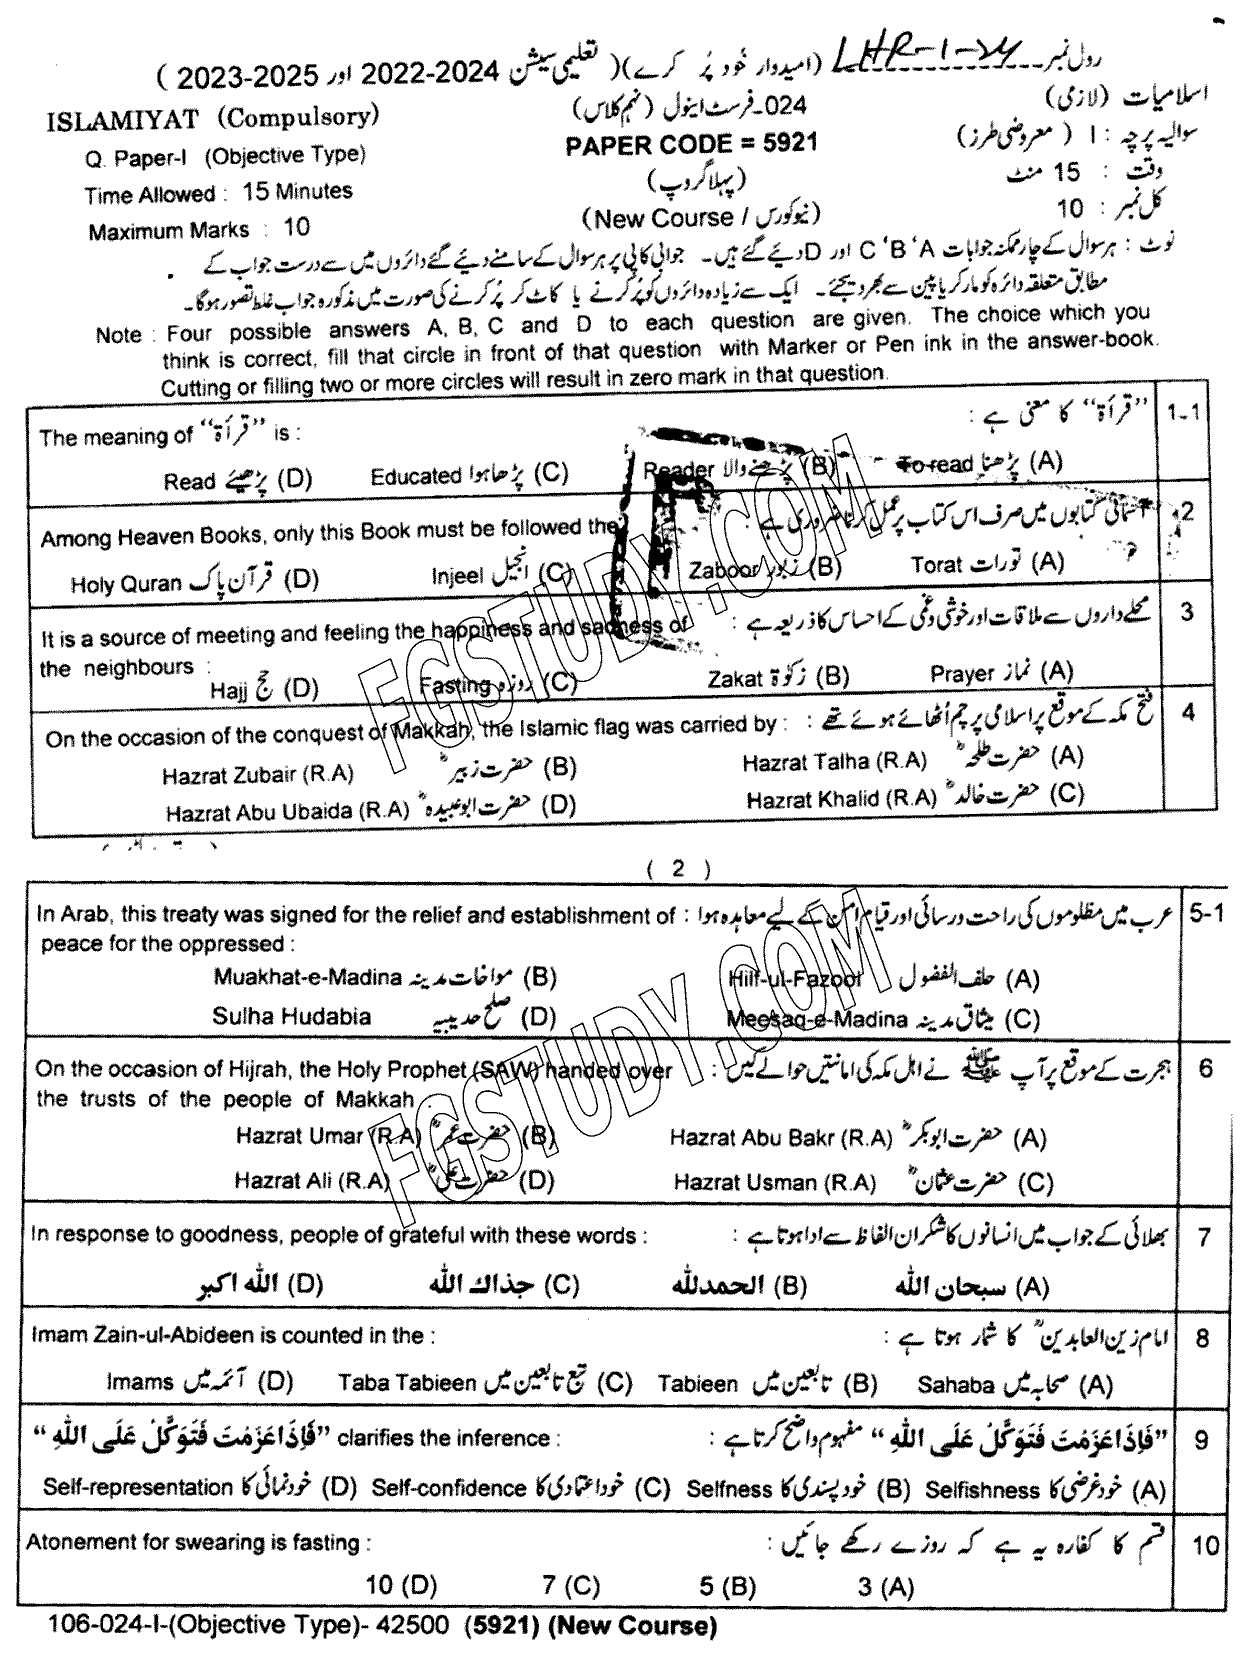 رول نمبر LHR-1-24 (امیدوار خود پُر کرے) (تعلیمی سیشن 2022-2024 اور 2023-2025)
ISLAMIYAT (Compulsory) 024-فرسٹ اینول (نہم کلاس) اسلامیات (لازمی)
Q. Paper-I (Objective Type) PAPER CODE = 5921 سوالیہ پرچہ : I (معروضی طرز)
Time Allowed : 15 Minutes (پہلا گروپ) وقت : 15 منٹ
Maximum Marks : 10 (New Course / نیو کورس) کل نمبر : 10
نوٹ : ہر سوال کے چار ممکنہ جوابات A ،B ،C اور D دئیے گئے ہیں۔ جوابی کاپی پر ہر سوال کے سامنے دئیے گئے دائروں میں سے درست جواب کے
مطابق متعلقہ دائرہ کو مارکر یا پین سے بھر دیجئے۔ ایک سے زیادہ دائروں کو پُر کرنے یا کاٹ کر پُر کرنے کی صورت میں مذکورہ جواب غلط تصور ہوگا۔
Note : Four possible answers A, B, C and D to each question are given. The choice which you
think is correct, fill that circle in front of that question with Marker or Pen ink in the answer-book.
Cutting or filling two or more circles will result in zero mark in that question.
The meaning of ‘‘قرأة’’ is : ‘‘قرأة’’ کا معنی ہے : 1-1
Read پڑھیئے (D) Educated پڑھا ہوا (C) Reader پڑھنے والا (B) To read پڑھنا (A)
Among Heaven Books, only this Book must be followed the آسمانی کتابوں میں صرف اس کتاب پر عمل کرنا ضروری ہے : 2
Holy Quran قرآن پاک (D) Injeel انجیل (C) Zaboor زبور (B) Torat تورات (A)
It is a source of meeting and feeling the happiness and sadness of محلے داروں سے ملاقات اور خوشی و غمی کے احساس کا ذریعہ ہے : 3
the neighbours :
Hajj حج (D) Fasting روزہ (C) Zakat زکوٰة (B) Prayer نماز (A)
On the occasion of the conquest of Makkah, the Islamic flag was carried by : فتح مکہ کے موقع پر اسلامی پرچم اُٹھائے ہوئے تھے : 4
Hazrat Zubair (R.A) حضرت زبیرؓ (B) Hazrat Talha (R.A) حضرت طلحہؓ (A)
Hazrat Abu Ubaida (R.A) حضرت ابوعبیدہؓ (D) Hazrat Khalid (R.A) حضرت خالدؓ (C)
( 2 )
In Arab, this treaty was signed for the relief and establishment of : عرب میں مظلوموں کی راحت و رسائی اور قیام امن کے لیے معاہدہ ہوا 5-1
peace for the oppressed :
Muakhat-e-Madina مواخات مدینہ (B) Hilf-ul-Fazool حلف الفضول (A)
Sulha Hudabia صلح حدیبیہ (D) Meesaq-e-Madina میثاق مدینہ (C)
On the occasion of Hijrah, the Holy Prophet (SAW) handed over ہجرت کے موقع پر آپ ﷺ نے اہل مکہ کی امانتیں حوالے کیں : 6
the trusts of the people of Makkah :
Hazrat Umar (R.A) حضرت عمرؓ (B) Hazrat Abu Bakr (R.A) حضرت ابوبکرؓ (A)
Hazrat Ali (R.A) حضرت علیؓ (D) Hazrat Usman (R.A) حضرت عثمانؓ (C)
In response to goodness, people of grateful with these words : بھلائی کے جواب میں انسانوں کا شکر ان الفاظ سے ادا ہوتا ہے : 7
الله اکبر (D) جذاك الله (C) الحمدلله (B) سبحان الله (A)
Imam Zain-ul-Abideen is counted in the : امام زین العابدینؒ کا شمار ہوتا ہے : 8
Imams آئمہ میں (D) Taba Tabieen تبع تابعین میں (C) Tabieen تابعین میں (B) Sahaba صحابہ میں (A)
‘‘فَإِذَا عَزَمْتَ فَتَوَكَّلْ عَلَى اللّٰهِ’’ clarifies the inference : ‘‘فَإِذَا عَزَمْتَ فَتَوَكَّلْ عَلَى اللّٰهِ’’ مفہوم واضح کرتا ہے : 9
Self-representation خود نمائی کا (D) Self-confidence خود اعتمادی کا (C) Selfness خود پسندی کا (B) Selfishness خود غرضی کا (A)
Atonement for swearing is fasting : قسم کا کفارہ یہ ہے کہ روزے رکھے جائیں : 10
10 (D) 7 (C) 5 (B) 3 (A)
106-024-I-(Objective Type)- 42500 (5921) (New Course)
FGSTUDY.COM
FGSTUDY.COM